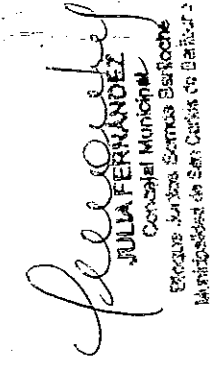 JULIA FERNANDEZ
Concejal Municipal
Bloque Juntos Somos Bariloche
Municipalidad de San Carlos de Bariloche